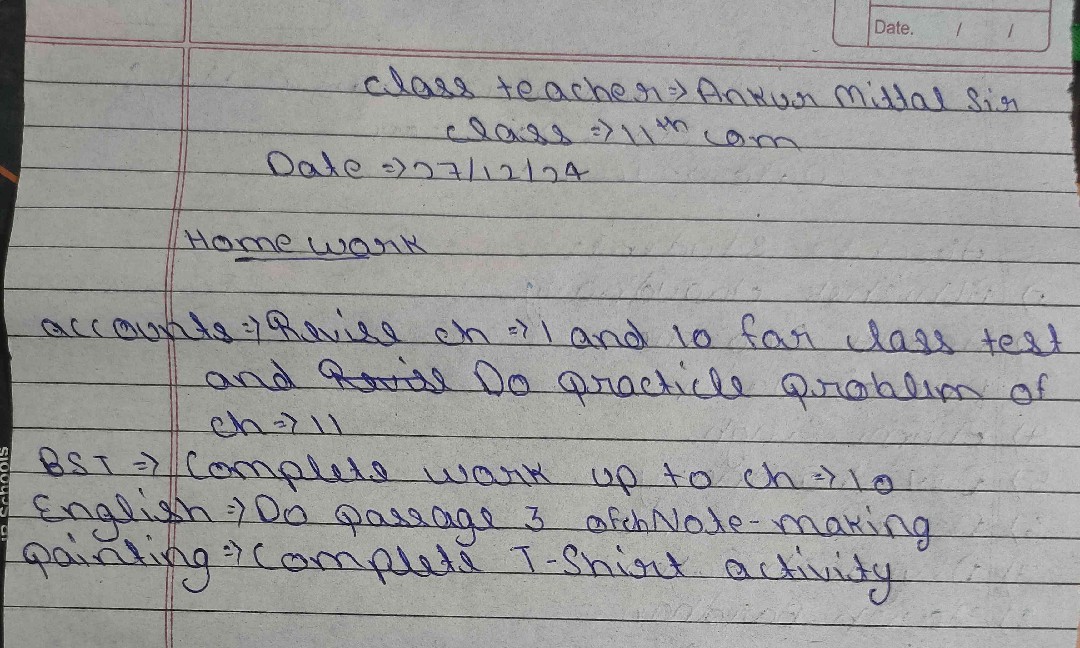 Date. / /
class teacher ⇒ Ankur Mittal Sir
class ⇒ 11th com
Date ⇒ 27/12/24
Home work
accounts ⇒ Revise ch ⇒ 1 and 10 for class test
and Do practicle problem of
ch ⇒ 11
BST ⇒ Complete work up to ch ⇒ 10
English ⇒ Do passage 3 of ch Note-making
painting ⇒ Complete T-Shirt activity